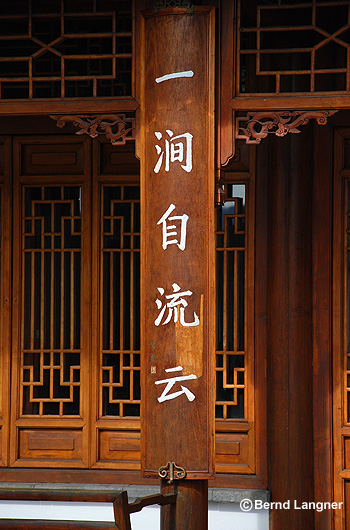 一涧自流云
©Bernd Langner